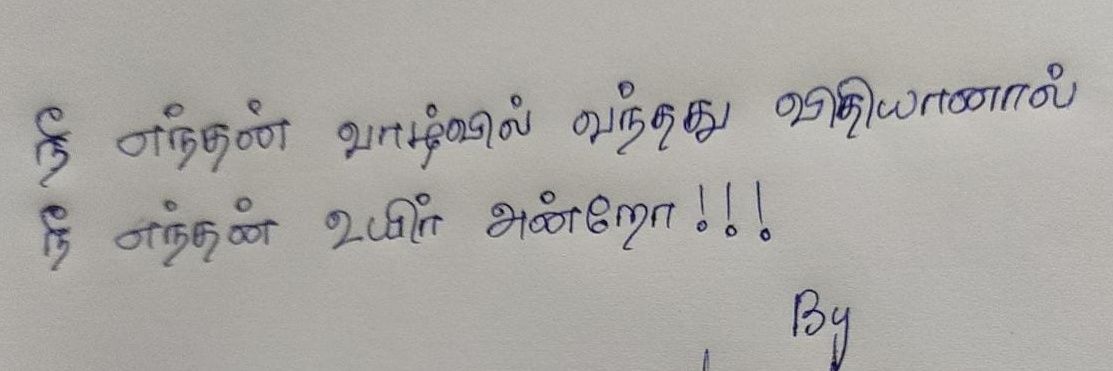 நீ எந்தன் வாழ்வில் வந்தது விதியானால்
நீ எந்தன் உயிர் அன்றோ!!!
By